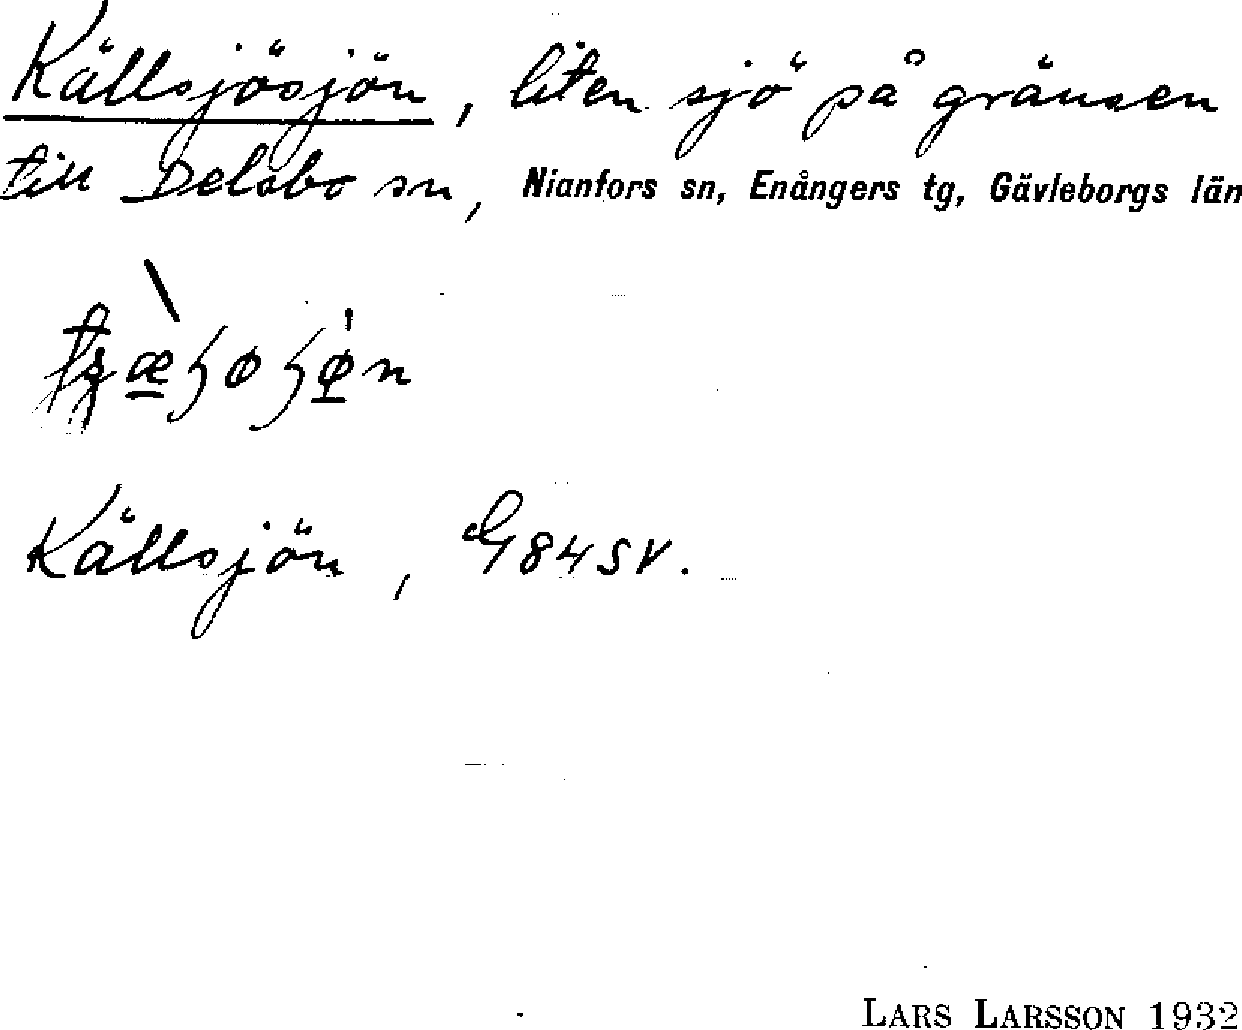 Källsjösjön, liten sjö på gränsen
till Delsbo sn, Nianfors sn, Enångers tg, Gävleborgs län
Källsjön, G 84 SV.
LARS LARSSON 1932